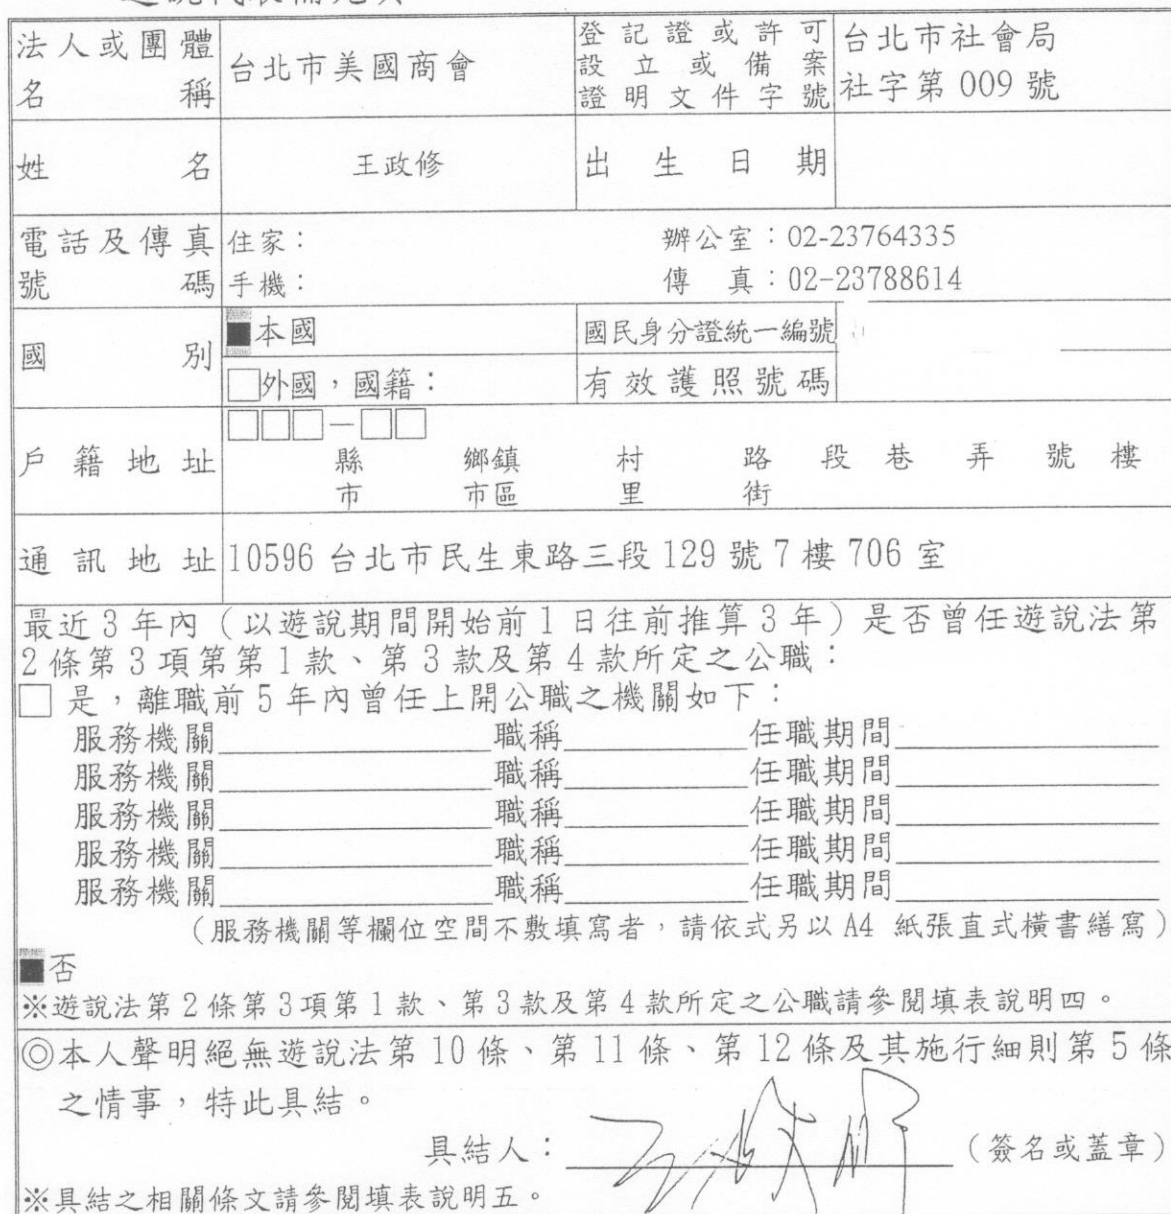 法人或團體名稱 台北市美國商會 登記證或許可設立或備案證明文件字號 台北市社會局社字第 009 號
姓名 王政修 出生日期
電話及傳真號碼 住家： 辦公室：02-23764335
手機： 傳真：02-23788614
國別 ■本國 國民身分證統一編號
□外國，國籍： 有效護照號碼
戶籍地址 □□□－□□
縣 鄉鎮 村 路 段 巷 弄 號 樓
市 市區 里 街
通訊地址 10596 台北市民生東路三段 129 號 7 樓 706 室
最近 3 年內（以遊說期間開始前 1 日往前推算 3 年）是否曾任遊說法第
2 條第 3 項第第 1 款、第 3 款及第 4 款所定之公職：
□ 是，離職前 5 年內曾任上開公職之機關如下：
服務機關＿＿＿＿職稱＿＿＿＿任職期間＿＿＿＿
服務機關＿＿＿＿職稱＿＿＿＿任職期間＿＿＿＿
服務機關＿＿＿＿職稱＿＿＿＿任職期間＿＿＿＿
服務機關＿＿＿＿職稱＿＿＿＿任職期間＿＿＿＿
服務機關＿＿＿＿職稱＿＿＿＿任職期間＿＿＿＿
（服務機關等欄位空間不敷填寫者，請依式另以 A4 紙張直式橫書繕寫）
■否
※遊說法第 2 條第 3 項第 1 款、第 3 款及第 4 款所定之公職請參閱填表說明四。
◎本人聲明絕無遊說法第 10 條、第 11 條、第 12 條及其施行細則第 5 條
之情事，特此具結。
具結人： （簽名或蓋章）
※具結之相關條文請參閱填表說明五。